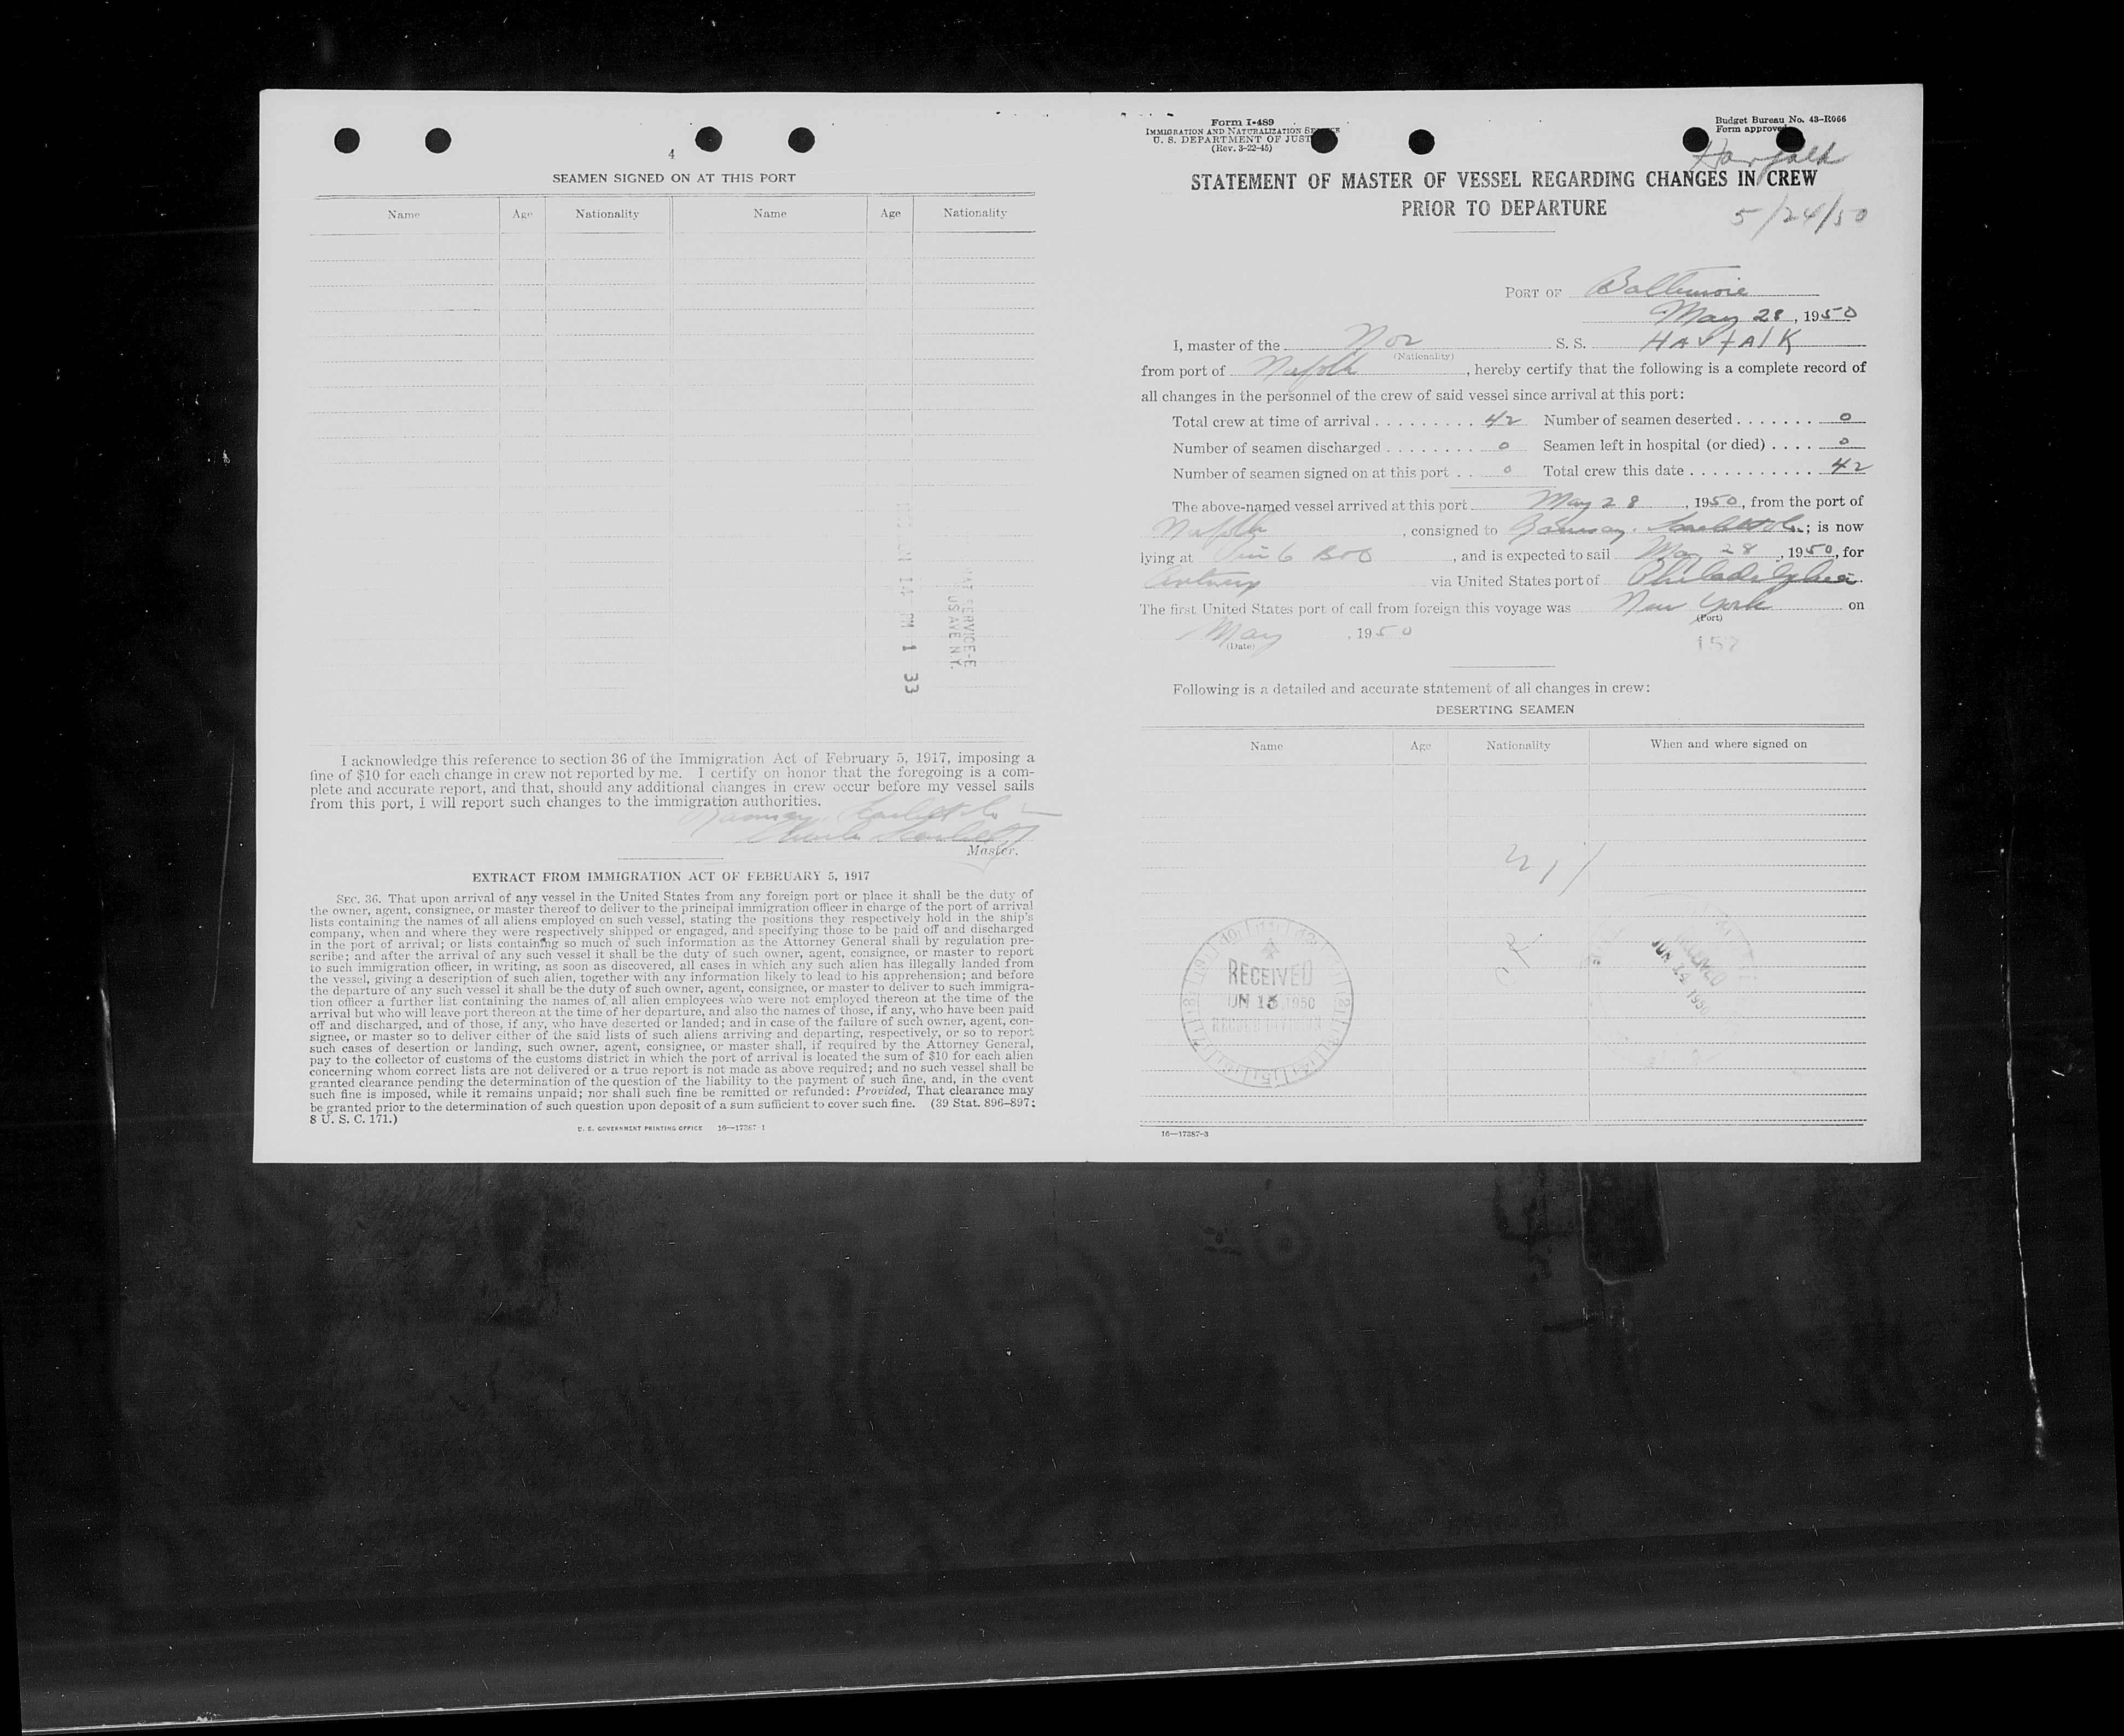 4
SEAMEN SIGNED ON AT THIS PORT
Name Age Nationality Name Age Nationality
I acknowledge this reference to section 36 of the Immigration Act of February 5, 1917, imposing a
fine of $10 for each change in crew not reported by me. I certify on honor that the foregoing is a com-
plete and accurate report, and that, should any additional changes in crew occur before my vessel sails
from this port, I will report such changes to the immigration authorities.
Master.
EXTRACT FROM IMMIGRATION ACT OF FEBRUARY 5, 1917
SEC. 36. That upon arrival of any vessel in the United States from any foreign port or place it shall be the duty of
the owner, agent, consignee, or master thereof to deliver to the principal immigration officer in charge of the port of arrival
lists containing the names of all aliens employed on such vessel, stating the positions they respectively hold in the ship's
company, when and where they were respectively shipped or engaged, and specifying those to be paid off and discharged
in the port of arrival; or lists containing so much of such information as the Attorney General shall by regulation pre-
scribe; and after the arrival of any such vessel it shall be the duty of such owner, agent, consignee, or master to report
to such immigration officer, in writing, as soon as discovered, all cases in which any such alien has illegally landed from
the vessel, giving a description of such alien, together with any information likely to lead to his apprehension; and before
the departure of any such vessel it shall be the duty of such owner, agent, consignee, or master to deliver to such immigra-
tion officer a further list containing the names of all alien employees who were not employed thereon at the time of the
arrival but who will leave port thereon at the time of her departure, and also the names of those, if any, who have been paid
off and discharged, and of those, if any, who have deserted or landed; and in case of the failure of such owner, agent, con-
signee, or master so to deliver either of the said lists of such aliens arriving and departing, respectively, or so to report
such cases of desertion or landing, such owner, agent, consignee, or master shall, if required by the Attorney General,
pay to the collector of customs of the customs district in which the port of arrival is located the sum of $10 for each alien
concerning whom correct lists are not delivered or a true report is not made as above required; and no such vessel shall be
granted clearance pending the determination of the question of the liability to the payment of such fine, and, in the event
such fine is imposed, while it remains unpaid; nor shall such fine be remitted or refunded: Provided, That clearance may
be granted prior to the determination of such question upon deposit of a sum sufficient to cover such fine. (39 Stat. 896-897;
8 U. S. C. 171.)
U. S. GOVERNMENT PRINTING OFFICE 16—17387-1
Form I-489
IMMIGRATION AND NATURALIZATION SERVICE
U. S. DEPARTMENT OF JUST
(Rev. 3-22-45)
Budget Bureau No. 43-R066
Form approved
Havfalk
STATEMENT OF MASTER OF VESSEL REGARDING CHANGES IN CREW
PRIOR TO DEPARTURE
5/24/50
PORT OF Baltimore
May 28, 1950
I, master of the Nor S. S. HAVfAlK
(Nationality)
from port of Norfolk, hereby certify that the following is a complete record of
all changes in the personnel of the crew of said vessel since arrival at this port:
Total crew at time of arrival 42 Number of seamen deserted 0
Number of seamen discharged 0 Seamen left in hospital (or died) 0
Number of seamen signed on at this port 0 Total crew this date 42
The above-named vessel arrived at this port May 28, 1950, from the port of
Norfolk, consigned to Ramsay, Scarlett Co.; is now
lying at Pier 6 B&O, and is expected to sail May 28, 1950, for
Antwerp via United States port of Philadelphia
The first United States port of call from foreign this voyage was New York on
(Port)
May, 1950
(Date)
157
Following is a detailed and accurate statement of all changes in crew:
DESERTING SEAMEN
Name Age Nationality When and where signed on
RECEIVED
JUN 13 1950
RECORD DIVISION
16—17387-3